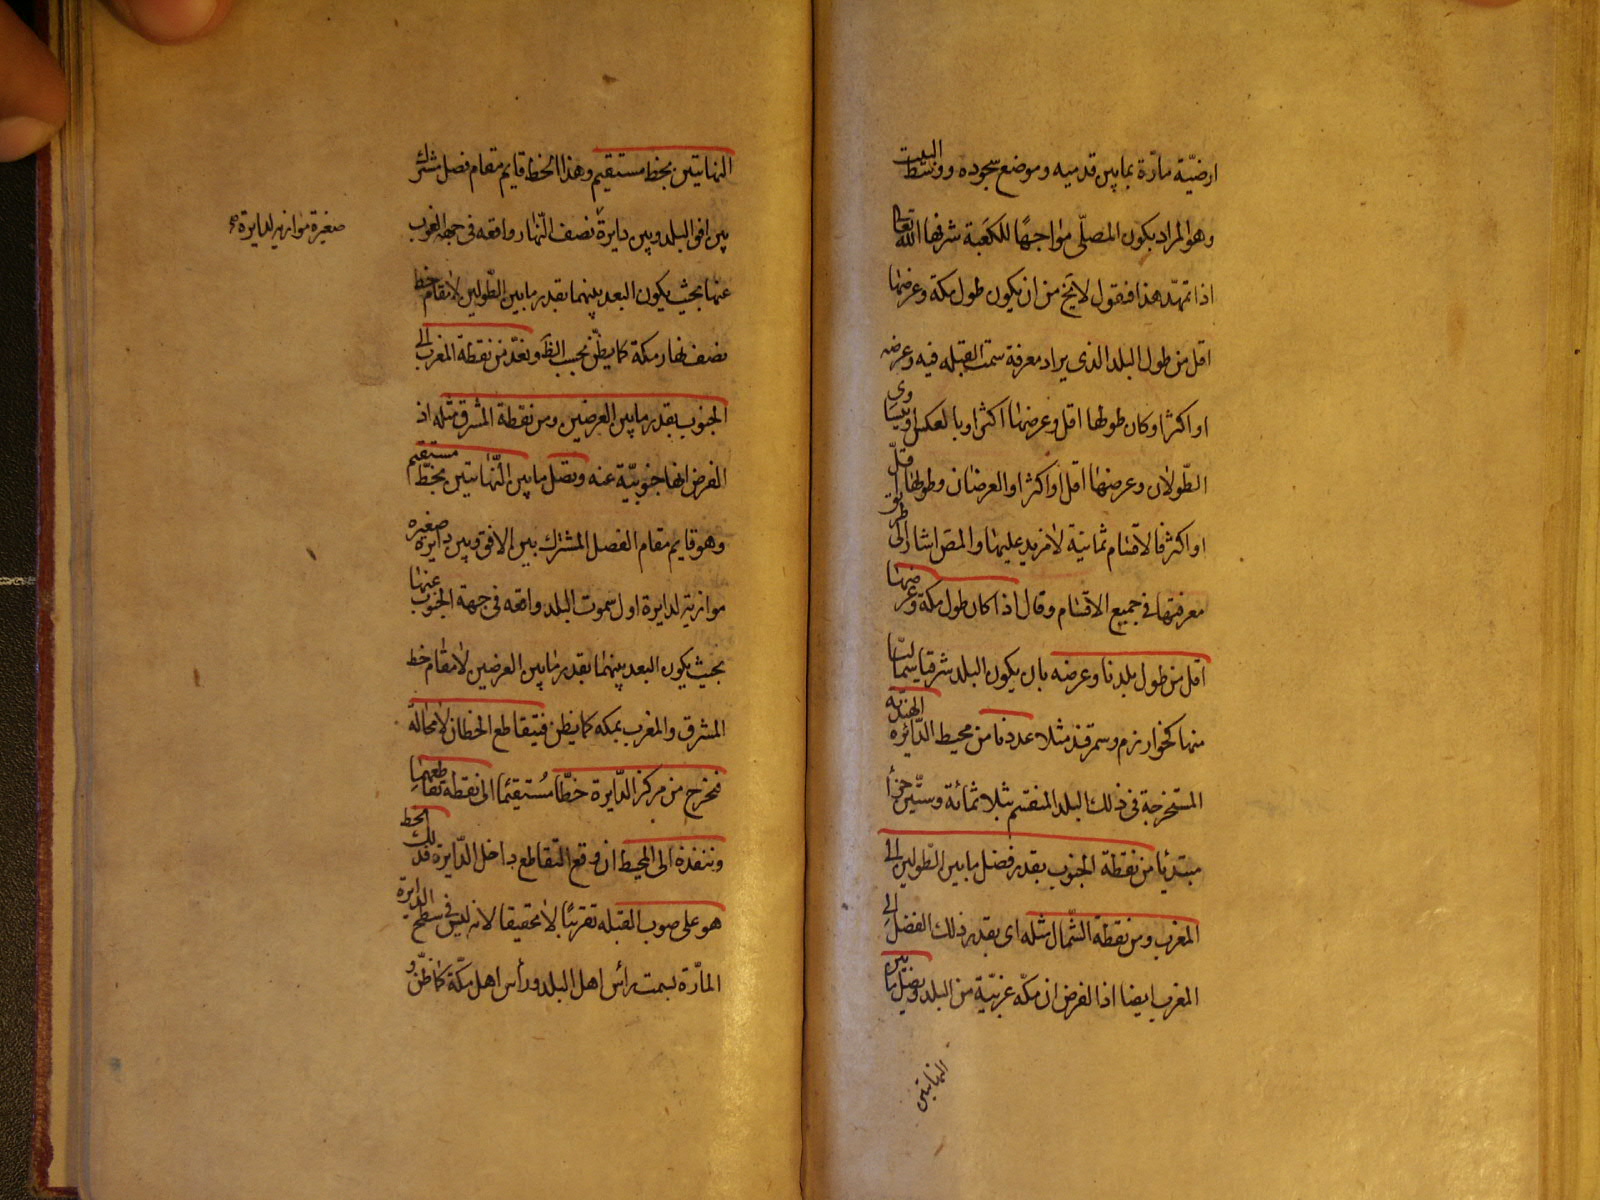 ارضيّة مارّة بما بين قدميه وموضع سجوده ووسط البيت
وهو المراد بكون المصلّى مواجهًا للكعبة شرفها الله تعالى
اذا تمهّد هذا فنقول لا يخ من ان يكون طول مكة وعرضها
اقل من طول البلد الذى يراد معرفة سمت القبله فيه وعرضه
او اكثر او كان طولها اقل وعرضها اكثر او بالعكس او يتساوى
الطّولان وعرضها اقل او اكثر او العرضان وطولها اقلّ
او اكثر فالاقسام ثمانية لا مزيد عليها والمص اشار الى طريق
معرفتها فى جميع الاقسام وقال اذا كان طول مكة وعرضها
اقل من طول بلدنا وعرضه بان يكون البلد شرقيا شماليّا
منها كخوارزم وسمرقند مثلا عددنا من محيط الدّائرة الهندية
المستخرجة فى ذلك البلد المنقسم بثلاثمائة وستّين جزأ
مبتدئا من نقطة الجنوب بقدر فضل ما بين الطّولين الى
المغرب ومن نقطة الشّمال مثله اى بقدر ذلك الفضل الى
المغرب ايضا اذ الفرض ان مكّه غربيّة من البلد ونصل ما بين
النهايتين
النهايتين بخط مستقيم وهذا الخط قايم مقام فصل مشترك
بين افق البلد وبين دايرة نصف النّهار واقعه فى جهة الغرب
صغيرة موازيه لدايرة صح
عنها بحيث يكون البعد بينهما بقدر ما بين الطّولين لا مقام خط
نصف نهار مكة كما يظنّ بحسب الظ ونعدّ من نقطة المغرب الى
الجنوب بقدر ما بين العرضين ومن نقطة المشرق مثله اذ
الفرض انها جنوبيّة عنه ونصل ما بين النّهايتين بخطّ مستقيم
وهو قايم مقام الفصل المشترك بين الافق وبين دايرة صغيره
موازية لدايرة اول سموت البلد واقعه فى جهة الجنوب عنها
بحيث يكون البعد بينهما بقدر ما بين العرضين لا مقام خط
المشرق والمغرب بمكه كما يظن فيتقاطع الخطان لا محالة
فنخرج من مركز الدّايرة خطّا مُستقيما الى نقطة تقاطعهما
وننفذه الى المحيط ان وقع التقاطع داخل الدّايرة فذلك الخط
هو على صوب القبله تقريبًا لا تحقيقا لانه ليس فى سطح الدايرة
المارّة بسمت رأس اهل البلد ورأس اهل مكّة كما ظنّ و